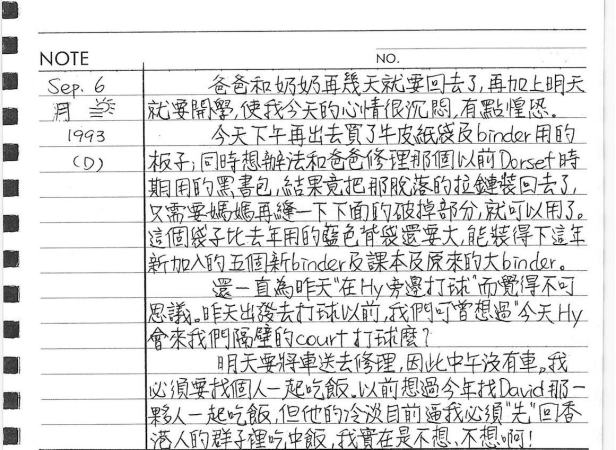 NOTE
NO.
Sep. 6
月
1993
(D)
爸爸和奶奶再幾天就要回去了,再加上明天
就要開學,使我今天的心情很沉悶,有點惶恐。
今天下午再出去買了牛皮紙袋及binder用的
板子;同時想辦法和爸爸修理那個以前Dorset時
期用的黑書包,結果竟把那脫落的拉鏈裝回去了,
只需要媽媽再縫一下下面的破掉部分,就可以用了。
這個袋子比去年用的藍色背袋還要大,能裝得下這年
新加入的五個新binder及課本及原來的大binder。
還一直為昨天"在Hy旁邊打球"而覺得不可
思議。昨天出發去打球以前,我們可曾想過"今天Hy
會來我們隔壁的court打球麼?
明天要將車送去修理,因此中午沒有車。我
必須要找個人一起吃飯。以前想過今年找David那一
夥人一起吃飯,但他的冷淡目前逼我必須"先"回香
港人的群子裡吃中飯,我實在是不想、不想啊!